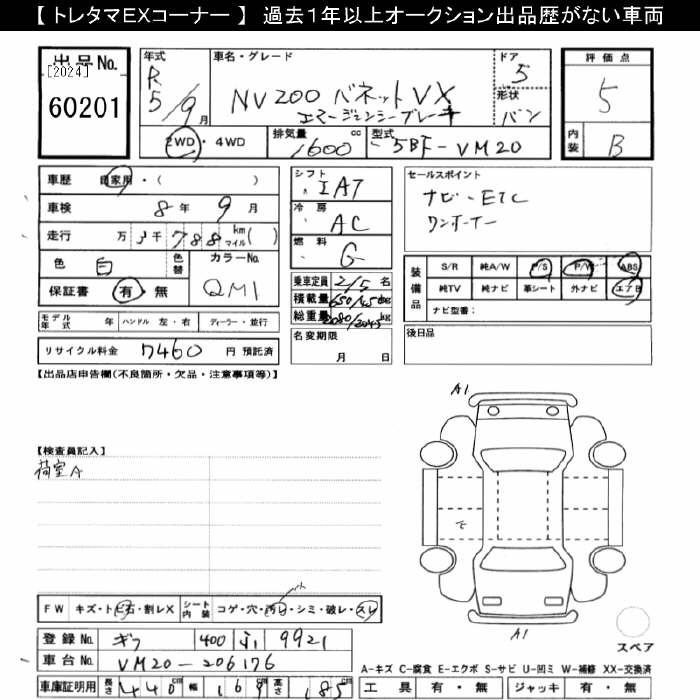 【 トレタマEXコーナー 】 過去1年以上オークション出品歴がない車両
出品No.
[2024]
60201
年式
R
5/9月
車名・グレード
NV200 バネットVX
エマージェンシーブレーキ
ドア
5
形状
バン
評価点
5
内装
B
2WD・4WD
排気量
1600 cc
型式
5BF-VM20
車歴 自家用・( )
車検 8年 9月
走行 万 3千788 km マイル( )
色 白 色替 カラーNo.
保証書 有・無 QM1
モデル年式 年 ハンドル 左・右 ディーラー・並行
リサイクル料金 7460 円 預託済
シフト
IAT
冷房
AC
燃料
G
乗車定員 2/5 名
積載量
総重量
名変期限
月 日
セールスポイント
ナビ・ETC
ワンオーナー
装備品
S/R 純A/W P/S P/W ABS
純TV 純ナビ 革シート 外ナビ エアB
ナビ型番：
後日品
【出品店申告欄(不良箇所・欠品・注意事項等)】
【検査員記入】
荷室A
A1
A1
スペア
FW キズ・トビ石・割レX シート内装 コゲ・穴・汚レ・シミ・破レ・スレ
登録No. ギフ 400 9921
車台No. VM20-206176
車庫証明用 長さ 440cm 幅 169cm 高さ 185cm
A-キズ C-腐食 E-エクボ S-サビ U-凹ミ W-補修 XX-交換済
工具 有・無 ジャッキ 有・無